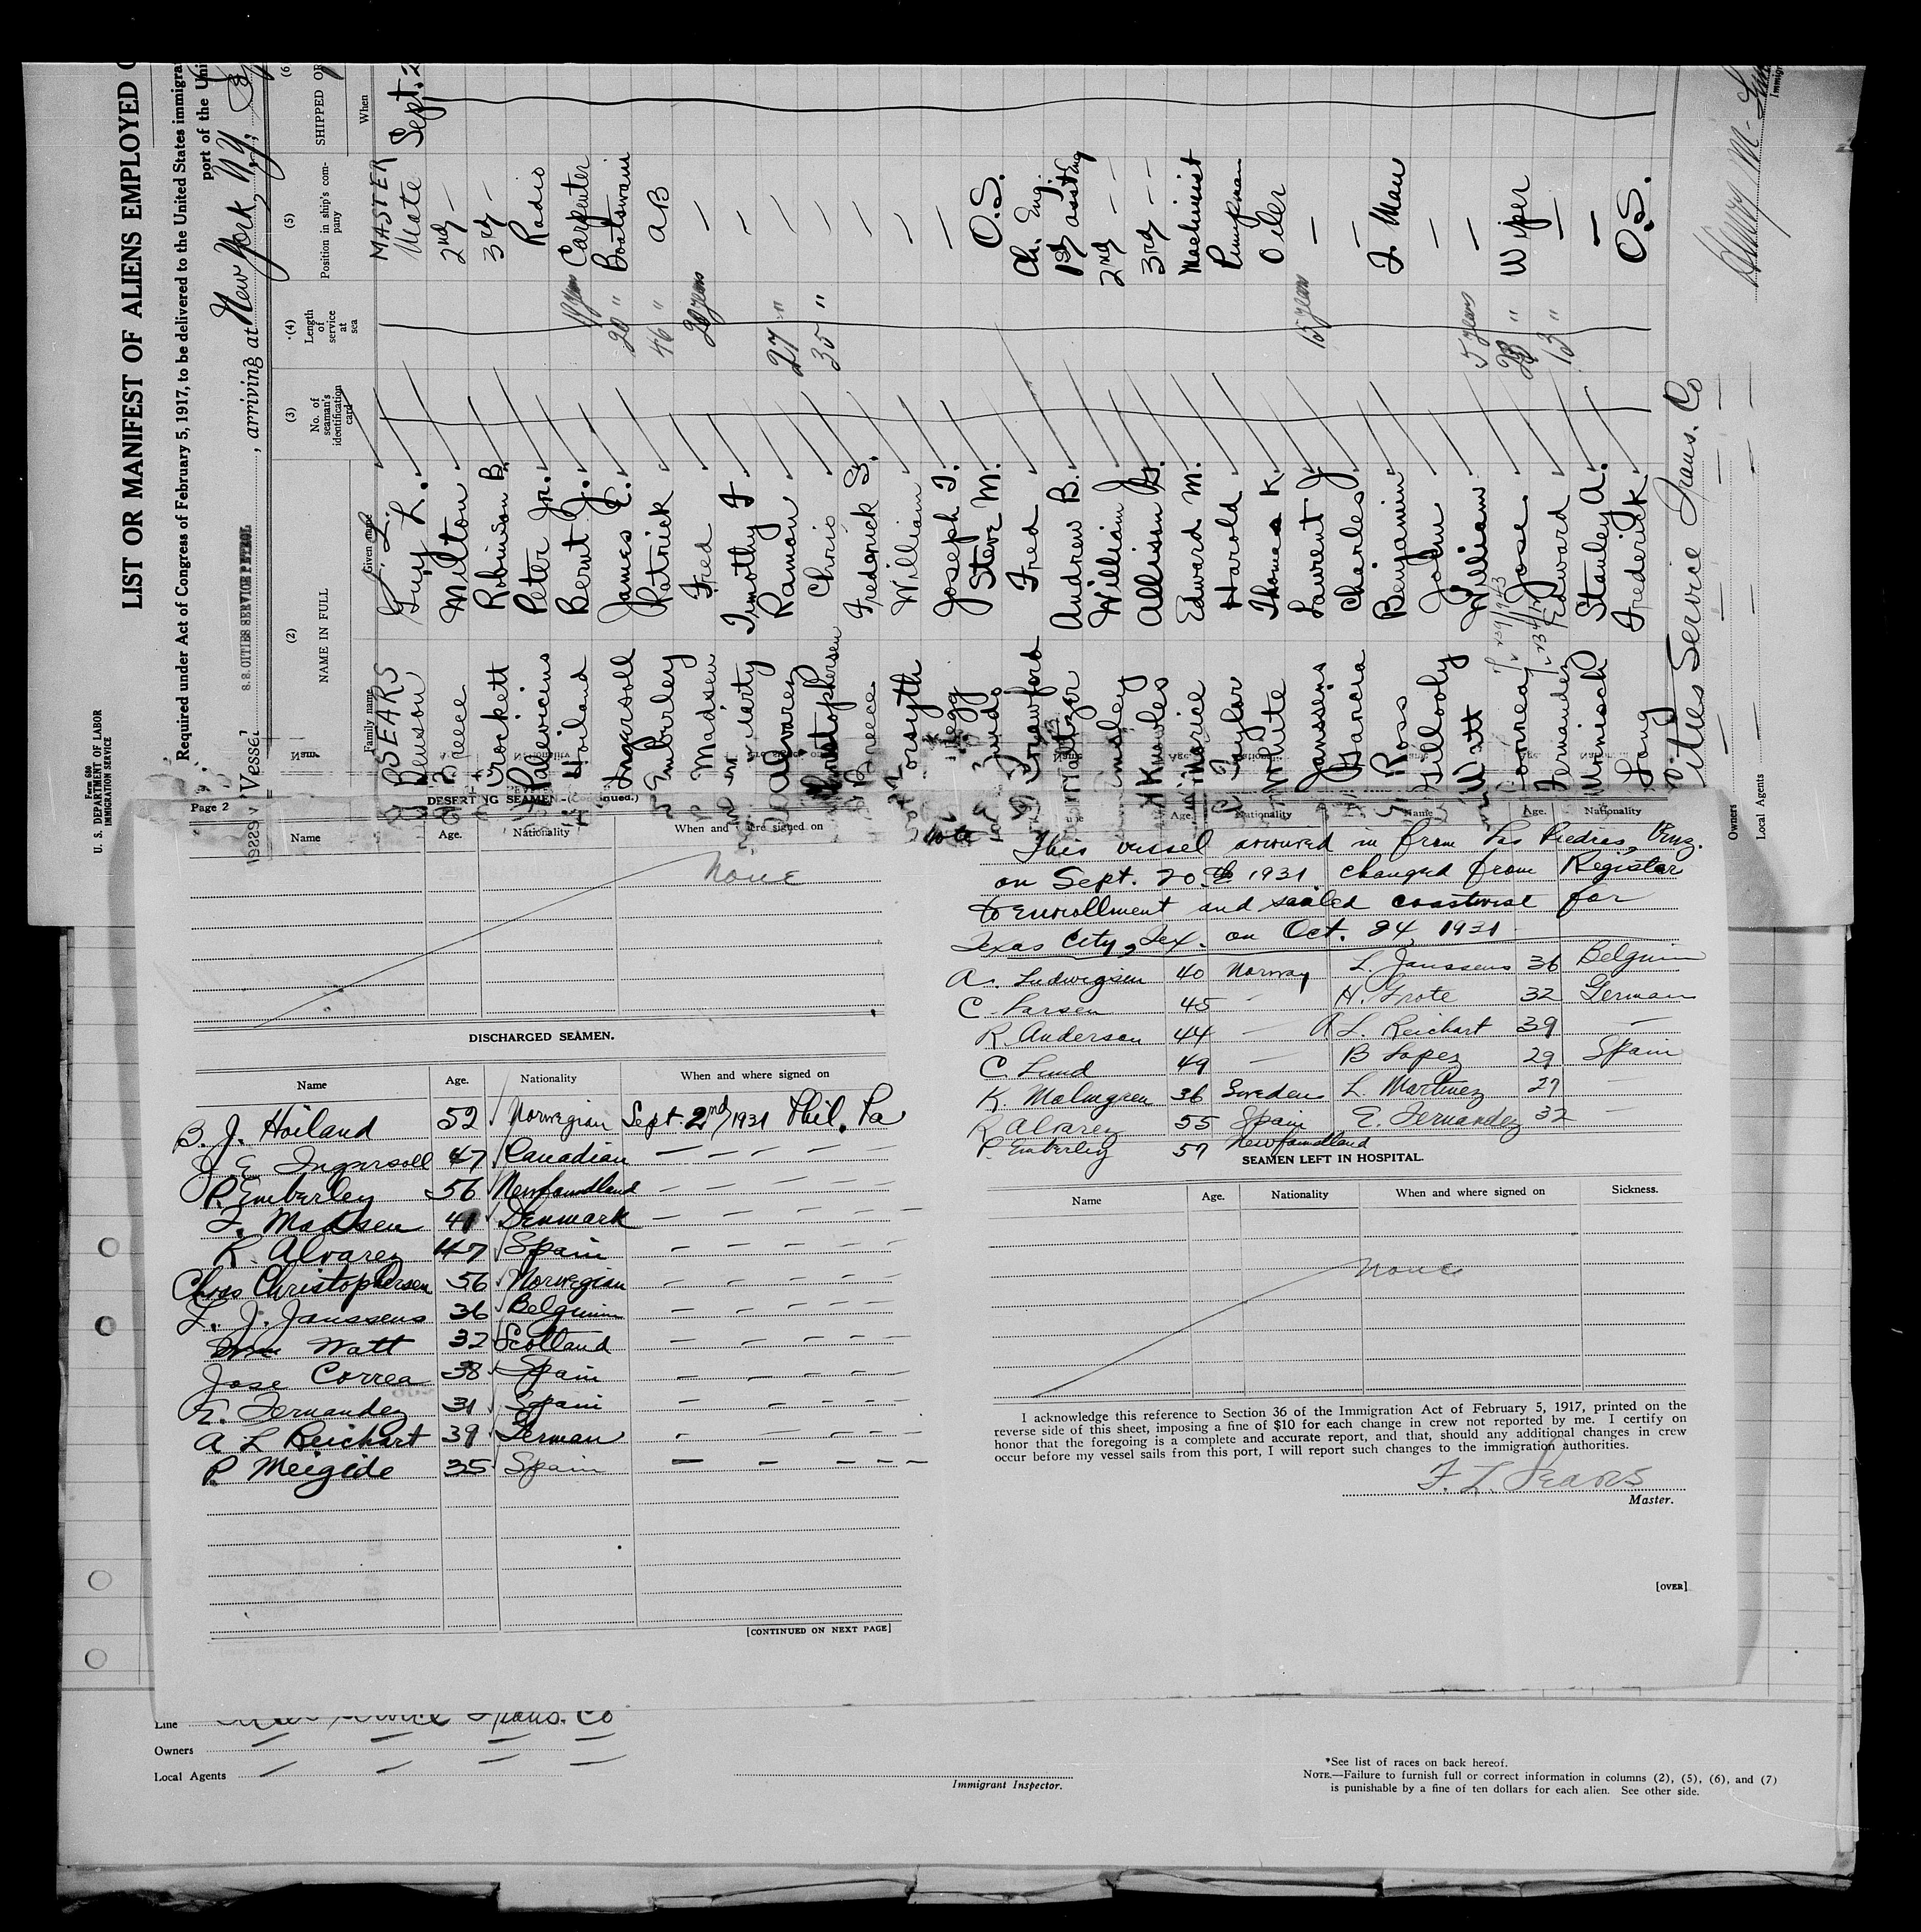 Form 680
U. S. DEPARTMENT OF LABOR
IMMIGRATION SERVICE
LIST OR MANIFEST OF ALIENS EMPLOYED
Required under Act of Congress of February 5, 1917, to be delivered to the United States immigra
port of the Uni
Vessel S.S. CITIES SERVICE PETROL, arriving at New York N.Y.,
(2) (3) (4) (5) (6)
NAME IN FULL
No. of seaman's identification card
Length of service at sea
Position in ship's company
SHIPPED OR
Family name Given name When
SEARS F. L. MASTER Sept. 2
Benson Guy L. Mate
Reece Milton 2nd —
Crockett Robinson B. 3rd —
Palvicins Peter Jr. Radio
Hoiland Bernt J. 19 years Carpenter
Ingersoll James E. 20 " Boatswain
Emberley Patrick 46 " AB
Madsen Fred 20 years —
Timothy F —
Alvarez Ramon 27 " —
Christophersen Chris 35 " —
Breece Frederick S. —
orsyth William —
egg Joseph T. —
Steve M. O.S.
Crawford Fred Ch. Eng.
Andrew B. 1st asst Eng
William J. 2nd — —
Knowles Allison G. 3rd — —
Edward M. Machinist
Taylor Harold Pumpman
White Thomas K. Oiler
Janssens Laurent J 15 years —
Garcia Charles J —
Ross Benjamin F. Man
Gillooly John —
Watt William 5 years —
Correa Jose 23 " Wiper
Fernandez Edward 13 " —
Stanley A. —
Long Frederick O.S.
Cities Service Trans. Co
Owners
Local Agents
Page 2
DESERTING SEAMEN—(Continued.)
Name Age. Nationality When and where signed on
None
DISCHARGED SEAMEN.
Name Age. Nationality When and where signed on
B. J. Hoiland 52 Norwegian Sept. 2nd/1931 Phil. Pa
J. E. Ingersoll 47 Canadian — — — —
P. Emberley 56 Newfoundland — — — —
F. Madsen 41 Denmark — — — — —
R. Alvarez 47 Spain — — — — —
Chris Christophersen 56 Norwegian — — — — —
L. J. Janssens 36 Belguim — — — — —
Wm Watt 32 Scotland — — — — —
Jose Correa 38 Spain — — — —
E. Fernandez 31 Spain — — — —
A L Reichart 39 German — — — —
P. Meigide 35 Spain — — — — —
[CONTINUED ON NEXT PAGE]
Note
Name Age. Nationality Name Age. Nationality
This vessel arrived in from Las Piedras, Venz.
on Sept. 20th 1931 changed from Register
to Enrollment and sailed coastwise for
Texas City, Tex. on Oct. 24, 1931
A. Ludwigsen 40 Norway L. Janssens 36 Belguim
C. Larsen 45 — H. Grote 32 German
R. Andersen 44 — A L. Reichart 39 —
C Lund 49 — B Lopez 29 Spain
K. Malmgren 36 Sweden L. Martinez 27 —
R Alvarez 55 Spain E. Fernandez 32 —
P. Emberley 57 Newfoundland
SEAMEN LEFT IN HOSPITAL.
Name Age. Nationality When and where signed on Sickness.
None
I acknowledge this reference to Section 36 of the Immigration Act of February 5, 1917, printed on the
reverse side of this sheet, imposing a fine of $10 for each change in crew not reported by me. I certify on
honor that the foregoing is a complete and accurate report, and that, should any additional changes in crew
occur before my vessel sails from this port, I will report such changes to the immigration authorities.
F. L. Sears
Master.
[OVER]
Line Cities Service Trans. Co
Owners — — — —
Local Agents — — — —
Immigrant Inspector.
*See list of races on back hereof.
NOTE.—Failure to furnish full or correct information in columns (2), (5), (6), and (7)
is punishable by a fine of ten dollars for each alien. See other side.